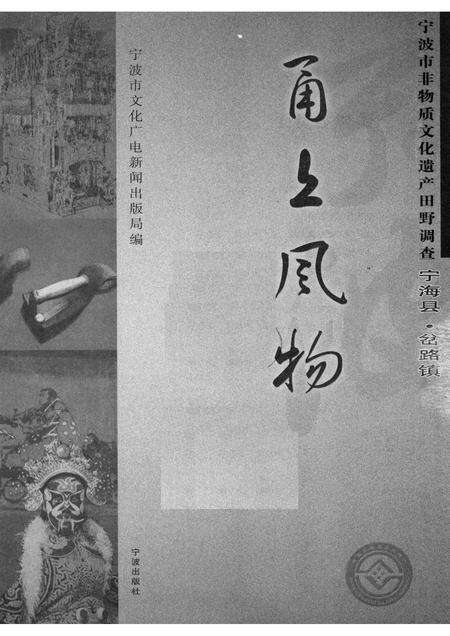 宁波市非物质文化遗产田野调查
宁海县·岔路镇
甬上风物
宁波市文化广电新闻出版局编
宁波出版社